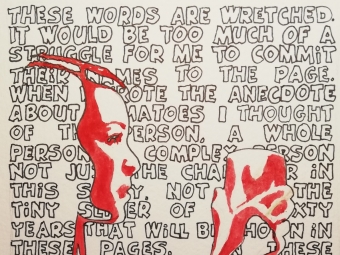 THESE WORDS ARE WRETCHED.
IT WOULD BE TOO MUCH OF A
STRUGGLE FOR ME TO COMMIT
THEIR NAMES TO THE PAGE.
WHEN I WROTE THE ANECDOTE
ABOUT I THOUGHT
OF A WHOLE
PERSON COMPLEX PERSON
NOT JUST THE IN
THIS NOT THE
TINY OF
YEARS THAT WILL BE IN
THESE PAGES. THESE